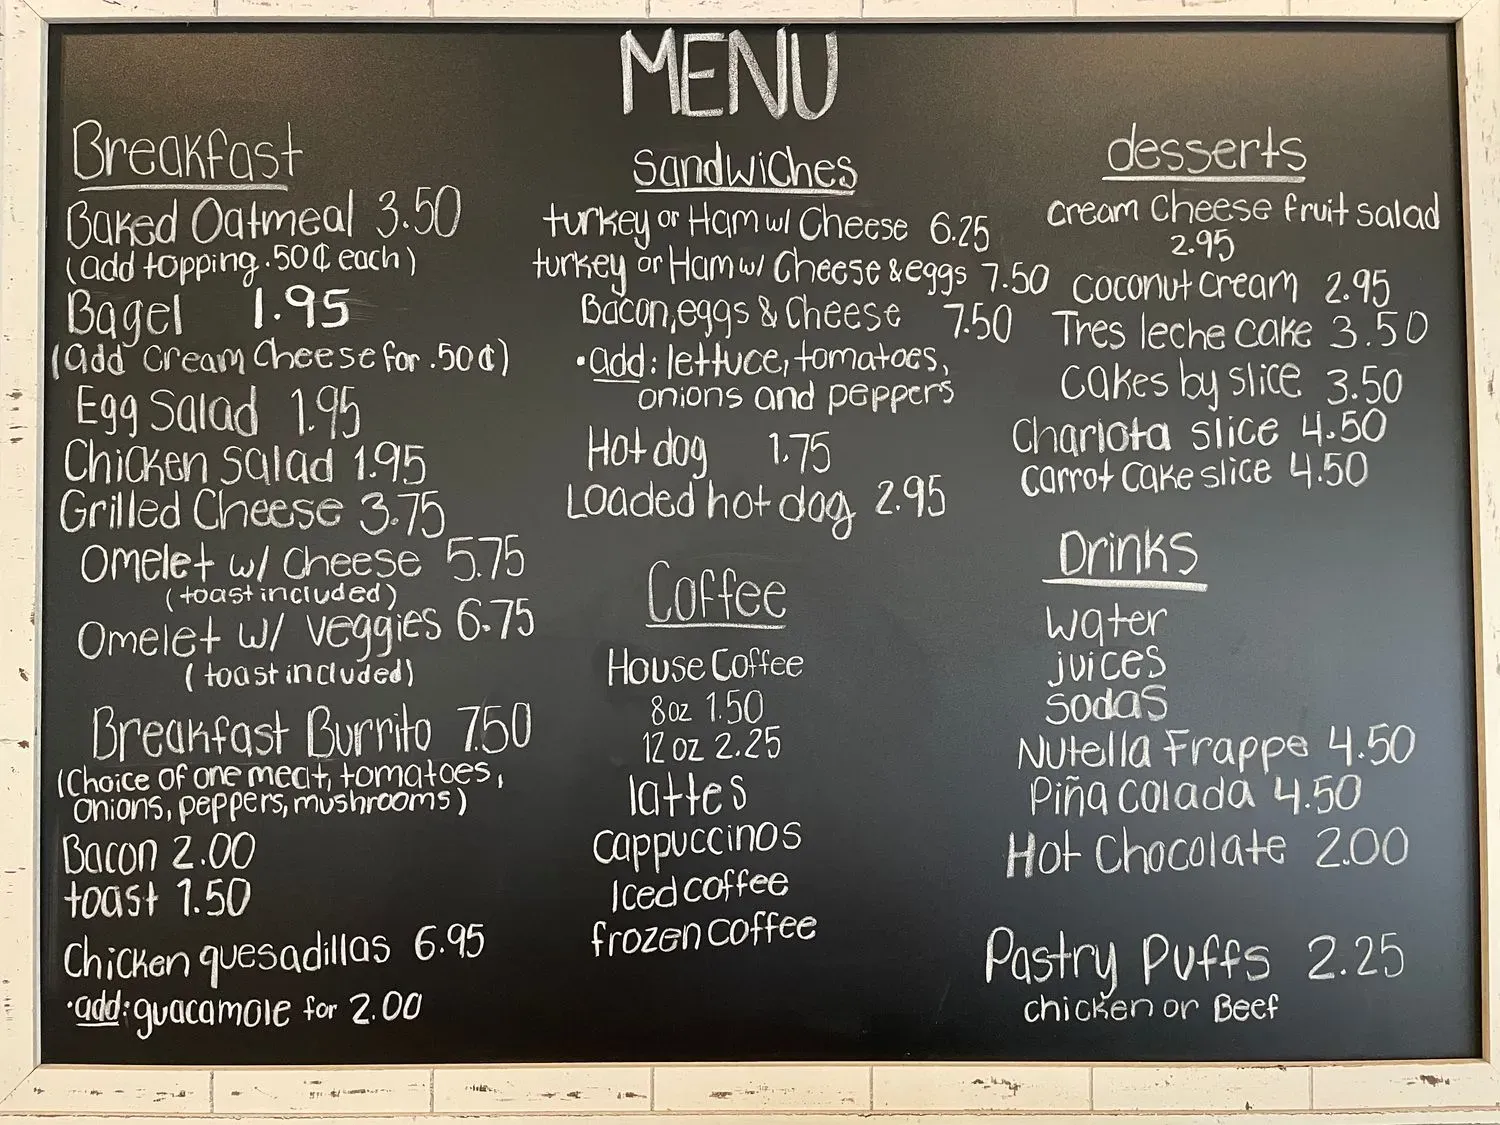 MENU
Breakfast
Baked Oatmeal 3.50
(add topping .50¢ each)
Bagel 1.95
(add cream cheese for .50¢)
Egg Salad 1.95
Chicken salad 1.95
Grilled Cheese 3.75
Omelet w/ cheese 5.75
(toast included)
Omelet w/ veggies 6.75
(toast included)
Breakfast Burrito 7.50
(Choice of one meat, tomatoes,
onions, peppers, mushrooms)
Bacon 2.00
toast 1.50
Chicken quesadillas 6.95
•add: guacamole for 2.00
Sandwiches
turkey or Ham w/ Cheese 6.25
turkey or Ham w/ Cheese & eggs 7.50
Bacon, eggs & Cheese 7.50
•add: lettuce, tomatoes,
onions and peppers
Hot dog 1.75
Loaded hot dog 2.95
Coffee
House Coffee
8oz 1.50
12 oz 2.25
lattes
cappuccinos
Iced coffee
frozen coffee
desserts
cream cheese fruit salad
2.95
coconut cream 2.95
Tres leche cake 3.50
cakes by slice 3.50
Charlota slice 4.50
carrot cake slice 4.50
Drinks
water
juices
sodas
Nutella Frappe 4.50
Piña colada 4.50
Hot Chocolate 2.00
Pastry Puffs 2.25
chicken or Beef